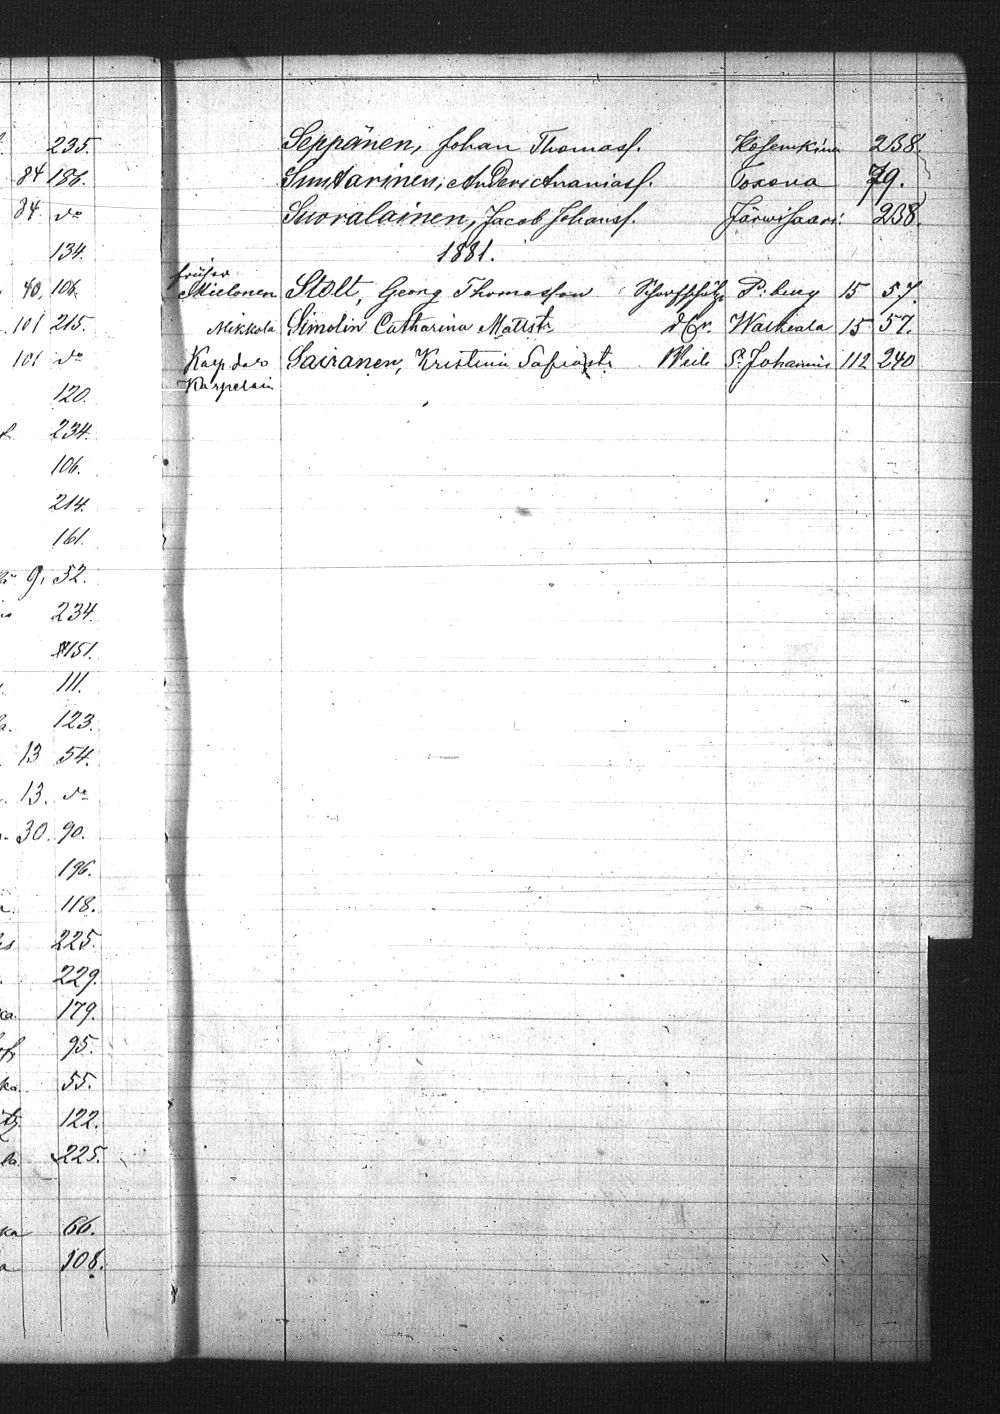 235.
84 186.
84. do
134.
40. 106.
101 215.
101 do
120.
234.
106.
214.
161.
9. 52.
234.
151.
111.
123.
13 54.
13. do
30. 90.
196.
118.
225.
229.
179.
95.
55.
122.
225.
66.
108.
Seppänen, Johan Thomass. 238.
Suntarinen, Anders Ananiass. Toxova 79.
Suoralainen, Jacob Johanss. Järwisaari 238.
1881.
früher
Mielonen Stolt, Georg Thomasson P:burg 15 57.
Mikkola Simolin Catharina Mattstr Walkeala 15 57.
Sairanen, Kristina Weib St Johannis 112 240
Karpelain